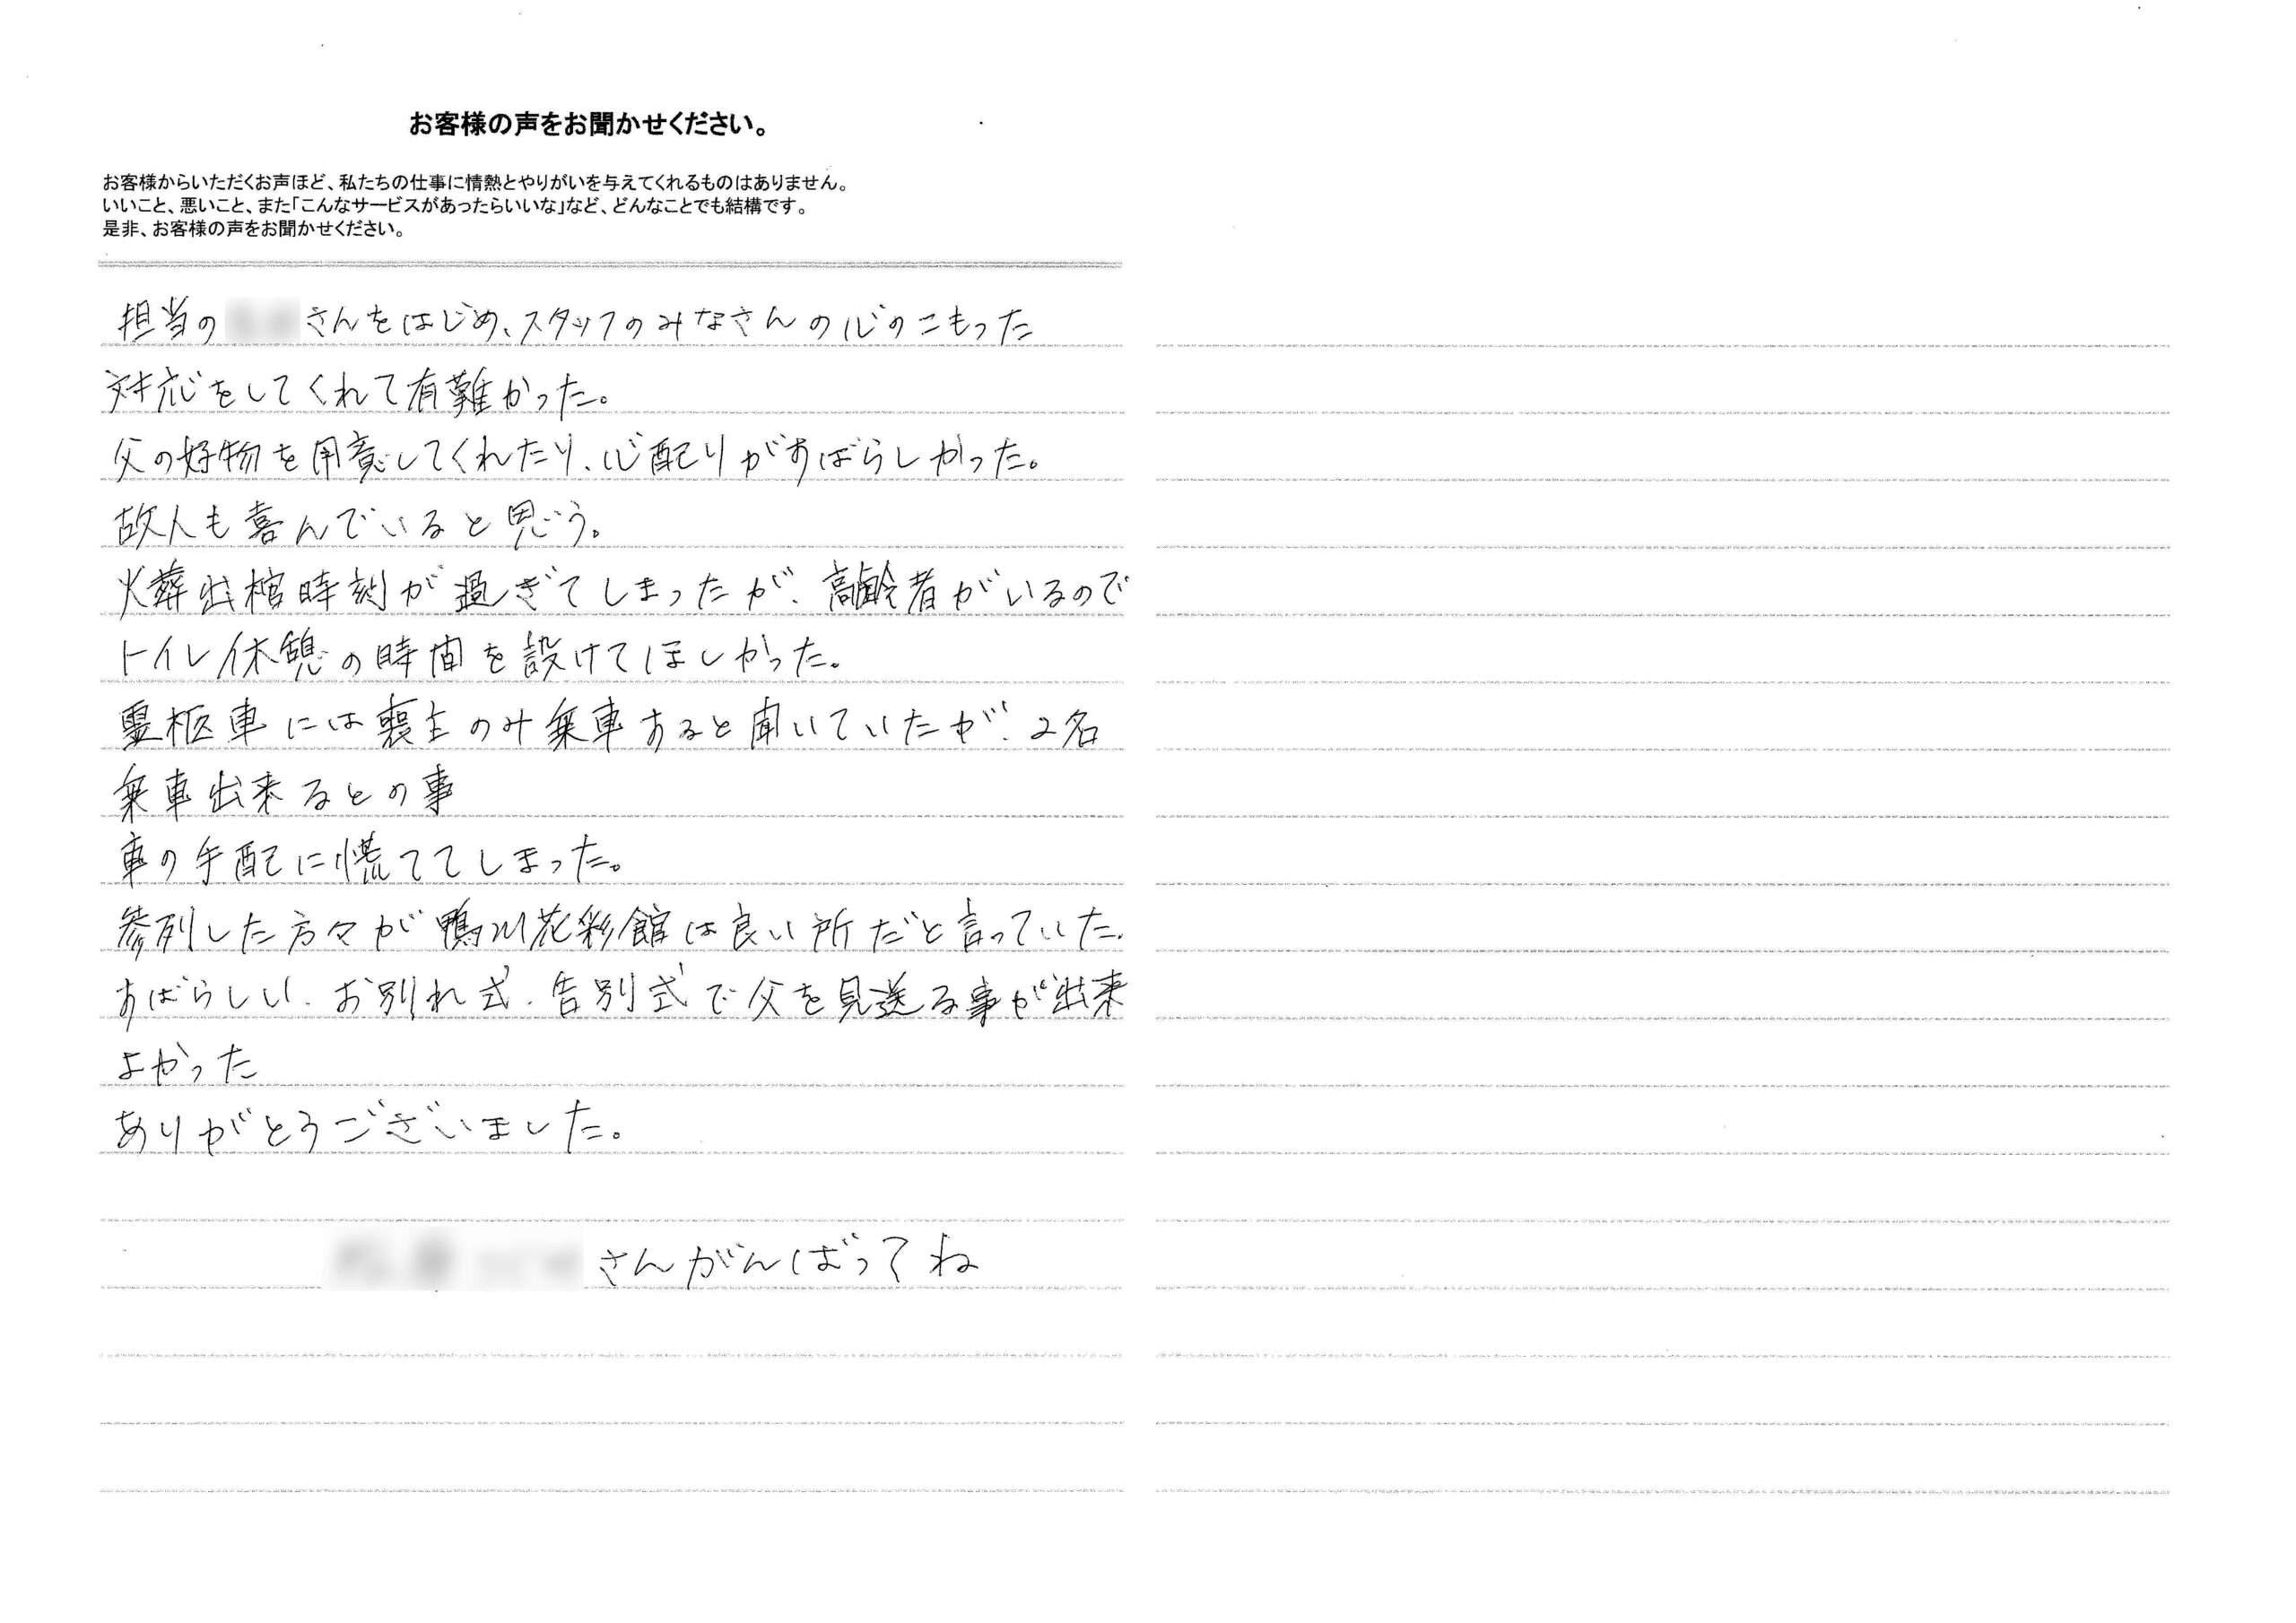 お客様の声をお聞かせください。
お客様からいただくお声ほど、私たちの仕事に情熱とやりがいを与えてくれるものはありません。
いいこと、悪いこと、また「こんなサービスがあったらいいな」など、どんなことでも結構です。
是非、お客様の声をお聞かせください。
担当の さんをはじめ、スタッフのみなさんの心のこもった
対応をしてくれて有難かった。
父の好物を用意してくれたり、心配りがすばらしかった。
故人も喜んでいると思う。
火葬出棺時刻が過ぎてしまったが、高齢者がいるので
トイレ休憩の時間を設けてほしかった。
霊柩車には喪主のみ乗車すると聞いていたが、2名
乗車出来るとの事
車の手配に慌ててしまった。
参列した方々が鴨川花彩館は良い所だと言っていた。
すばらしい、お別れ式、告別式で父を見送る事が出来
よかった
ありがとうございました。
さんがんばってね